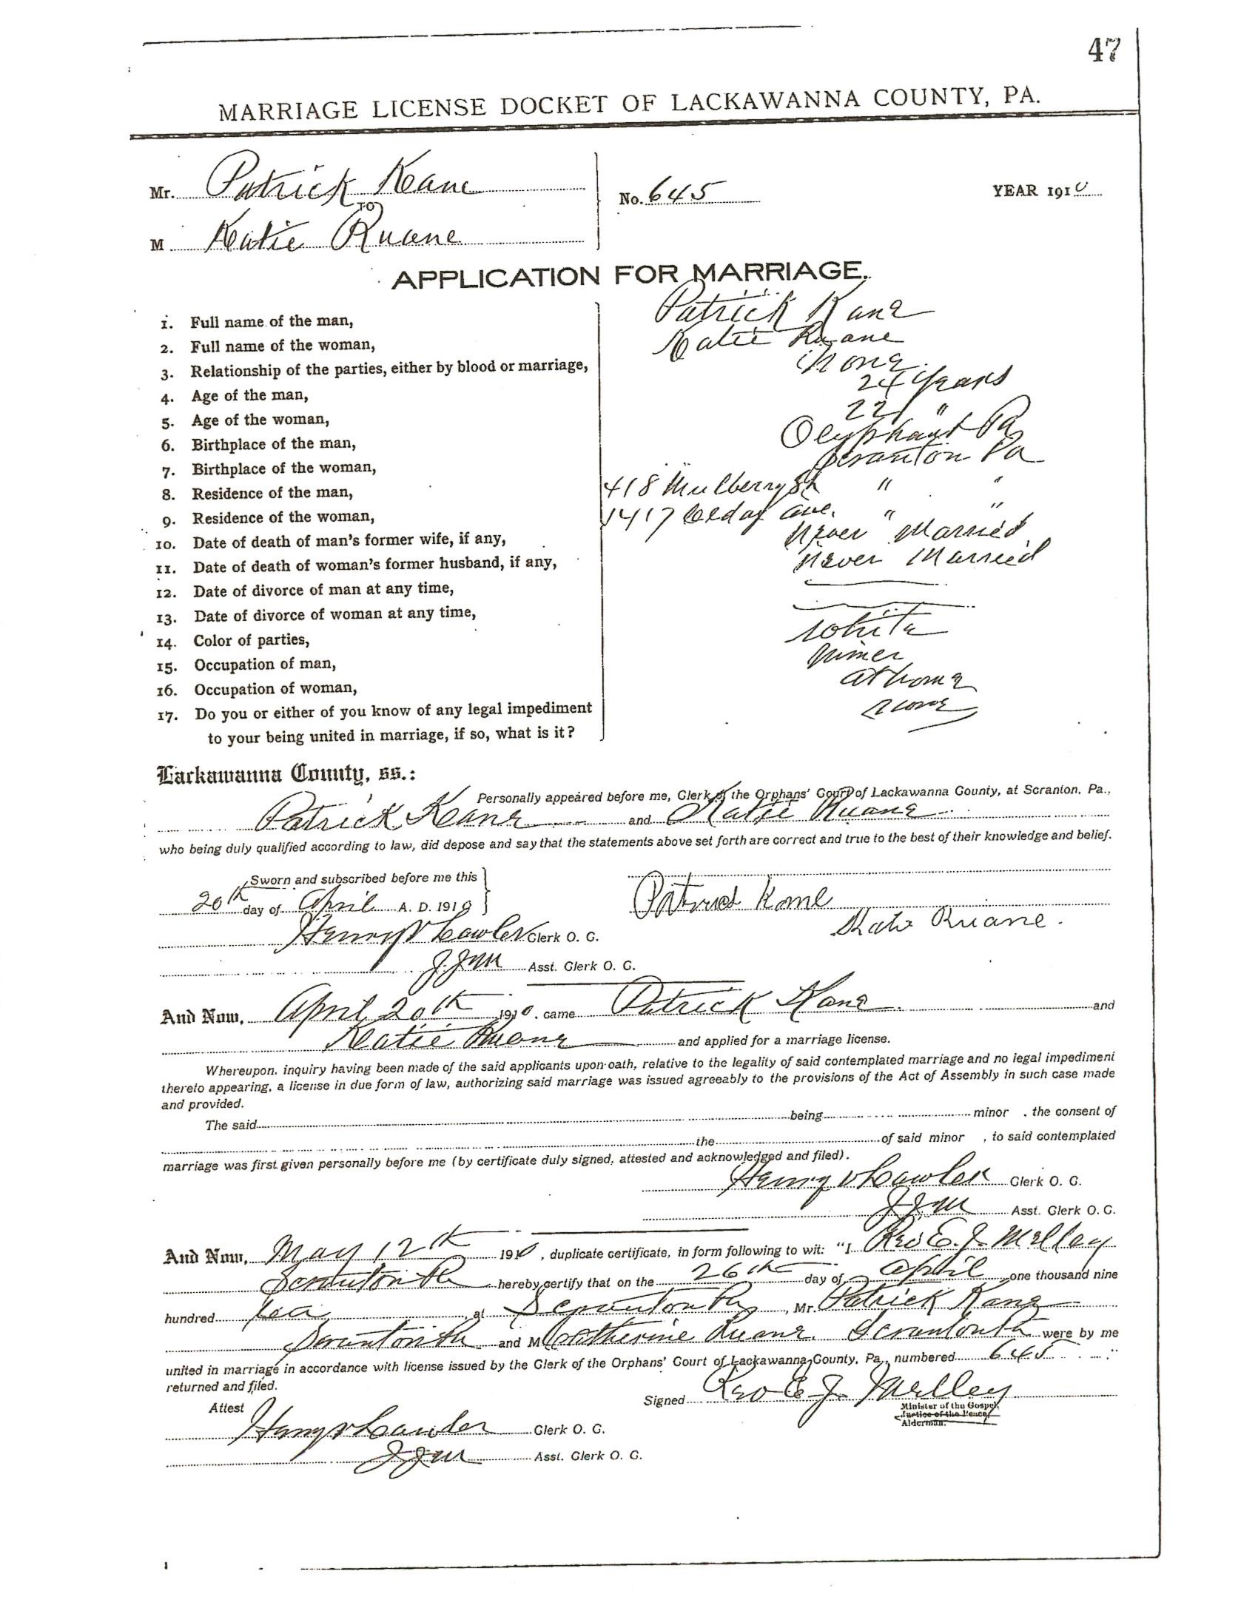 47
MARRIAGE LICENSE DOCKET OF LACKAWANNA COUNTY, PA.
Mr. Patrick Keane
TO
No. 645
YEAR 1910
M Katie Ruane
APPLICATION FOR MARRIAGE.
1. Full name of the man, Patrick Kane
2. Full name of the woman, Katie Ruane
3. Relationship of the parties, either by blood or marriage, None
4. Age of the man, 24 Years
5. Age of the woman, 22 "
6. Birthplace of the man, Olyphant Pa
7. Birthplace of the woman, Scranton Pa
8. Residence of the man, 418 Mulberry St " "
9. Residence of the woman, 1417 Cedar Ave. " "
10. Date of death of man's former wife, if any, Never Married
11. Date of death of woman's former husband, if any, Never Married
12. Date of divorce of man at any time,
13. Date of divorce of woman at any time,
14. Color of parties, White
15. Occupation of man, Miner
16. Occupation of woman, at home
17. Do you or either of you know of any legal impediment
to your being united in marriage, if so, what is it? none
Lackawanna County, ss.:
Personally appeared before me, Clerk of the Orphans' Court of Lackawanna County, at Scranton, Pa.,
Patrick Kane and Katie Ruane
who being duly qualified according to law, did depose and say that the statements above set forth are correct and true to the best of their knowledge and belief.
Sworn and subscribed before me this
20th day of April A. D. 1910
Patrick Kane
Kate Ruane.
Henry Clerk O. C.
J.J.M. Asst. Clerk O. C.
And Now, April 20th 1910, came Patrick Kane and
Katie Ruane and applied for a marriage license.
Whereupon, inquiry having been made of the said applicants upon oath, relative to the legality of said contemplated marriage and no legal impediment
thereto appearing, a license in due form of law, authorizing said marriage was issued agreeably to the provisions of the Act of Assembly in such case made
and provided.
The said being minor , the consent of
the of said minor , to said contemplated
marriage was first given personally before me (by certificate duly signed, attested and acknowledged and filed).
Henry Clerk O. C.
J.J.M. Asst. Clerk O. C.
And Now, May 12th 1910, duplicate certificate, in form following to wit: "I Rev E. J. Melley
Scranton Pa hereby certify that on the 26th day of April one thousand nine
hundred ten at Scranton Pa, Mr. Patrick Kane
Scranton Pa and M Catherine Ruane. Scranton Pa were by me
united in marriage in accordance with license issued by the Clerk of the Orphans' Court of Lackawanna County, Pa., numbered 645
returned and filed.
Signed Rev E. J. Melley
Minister of the Gospel,
Justice of the Peace,
Alderman.
Attest
Henry Clerk O. C.
J.J.M. Asst. Clerk O. C.